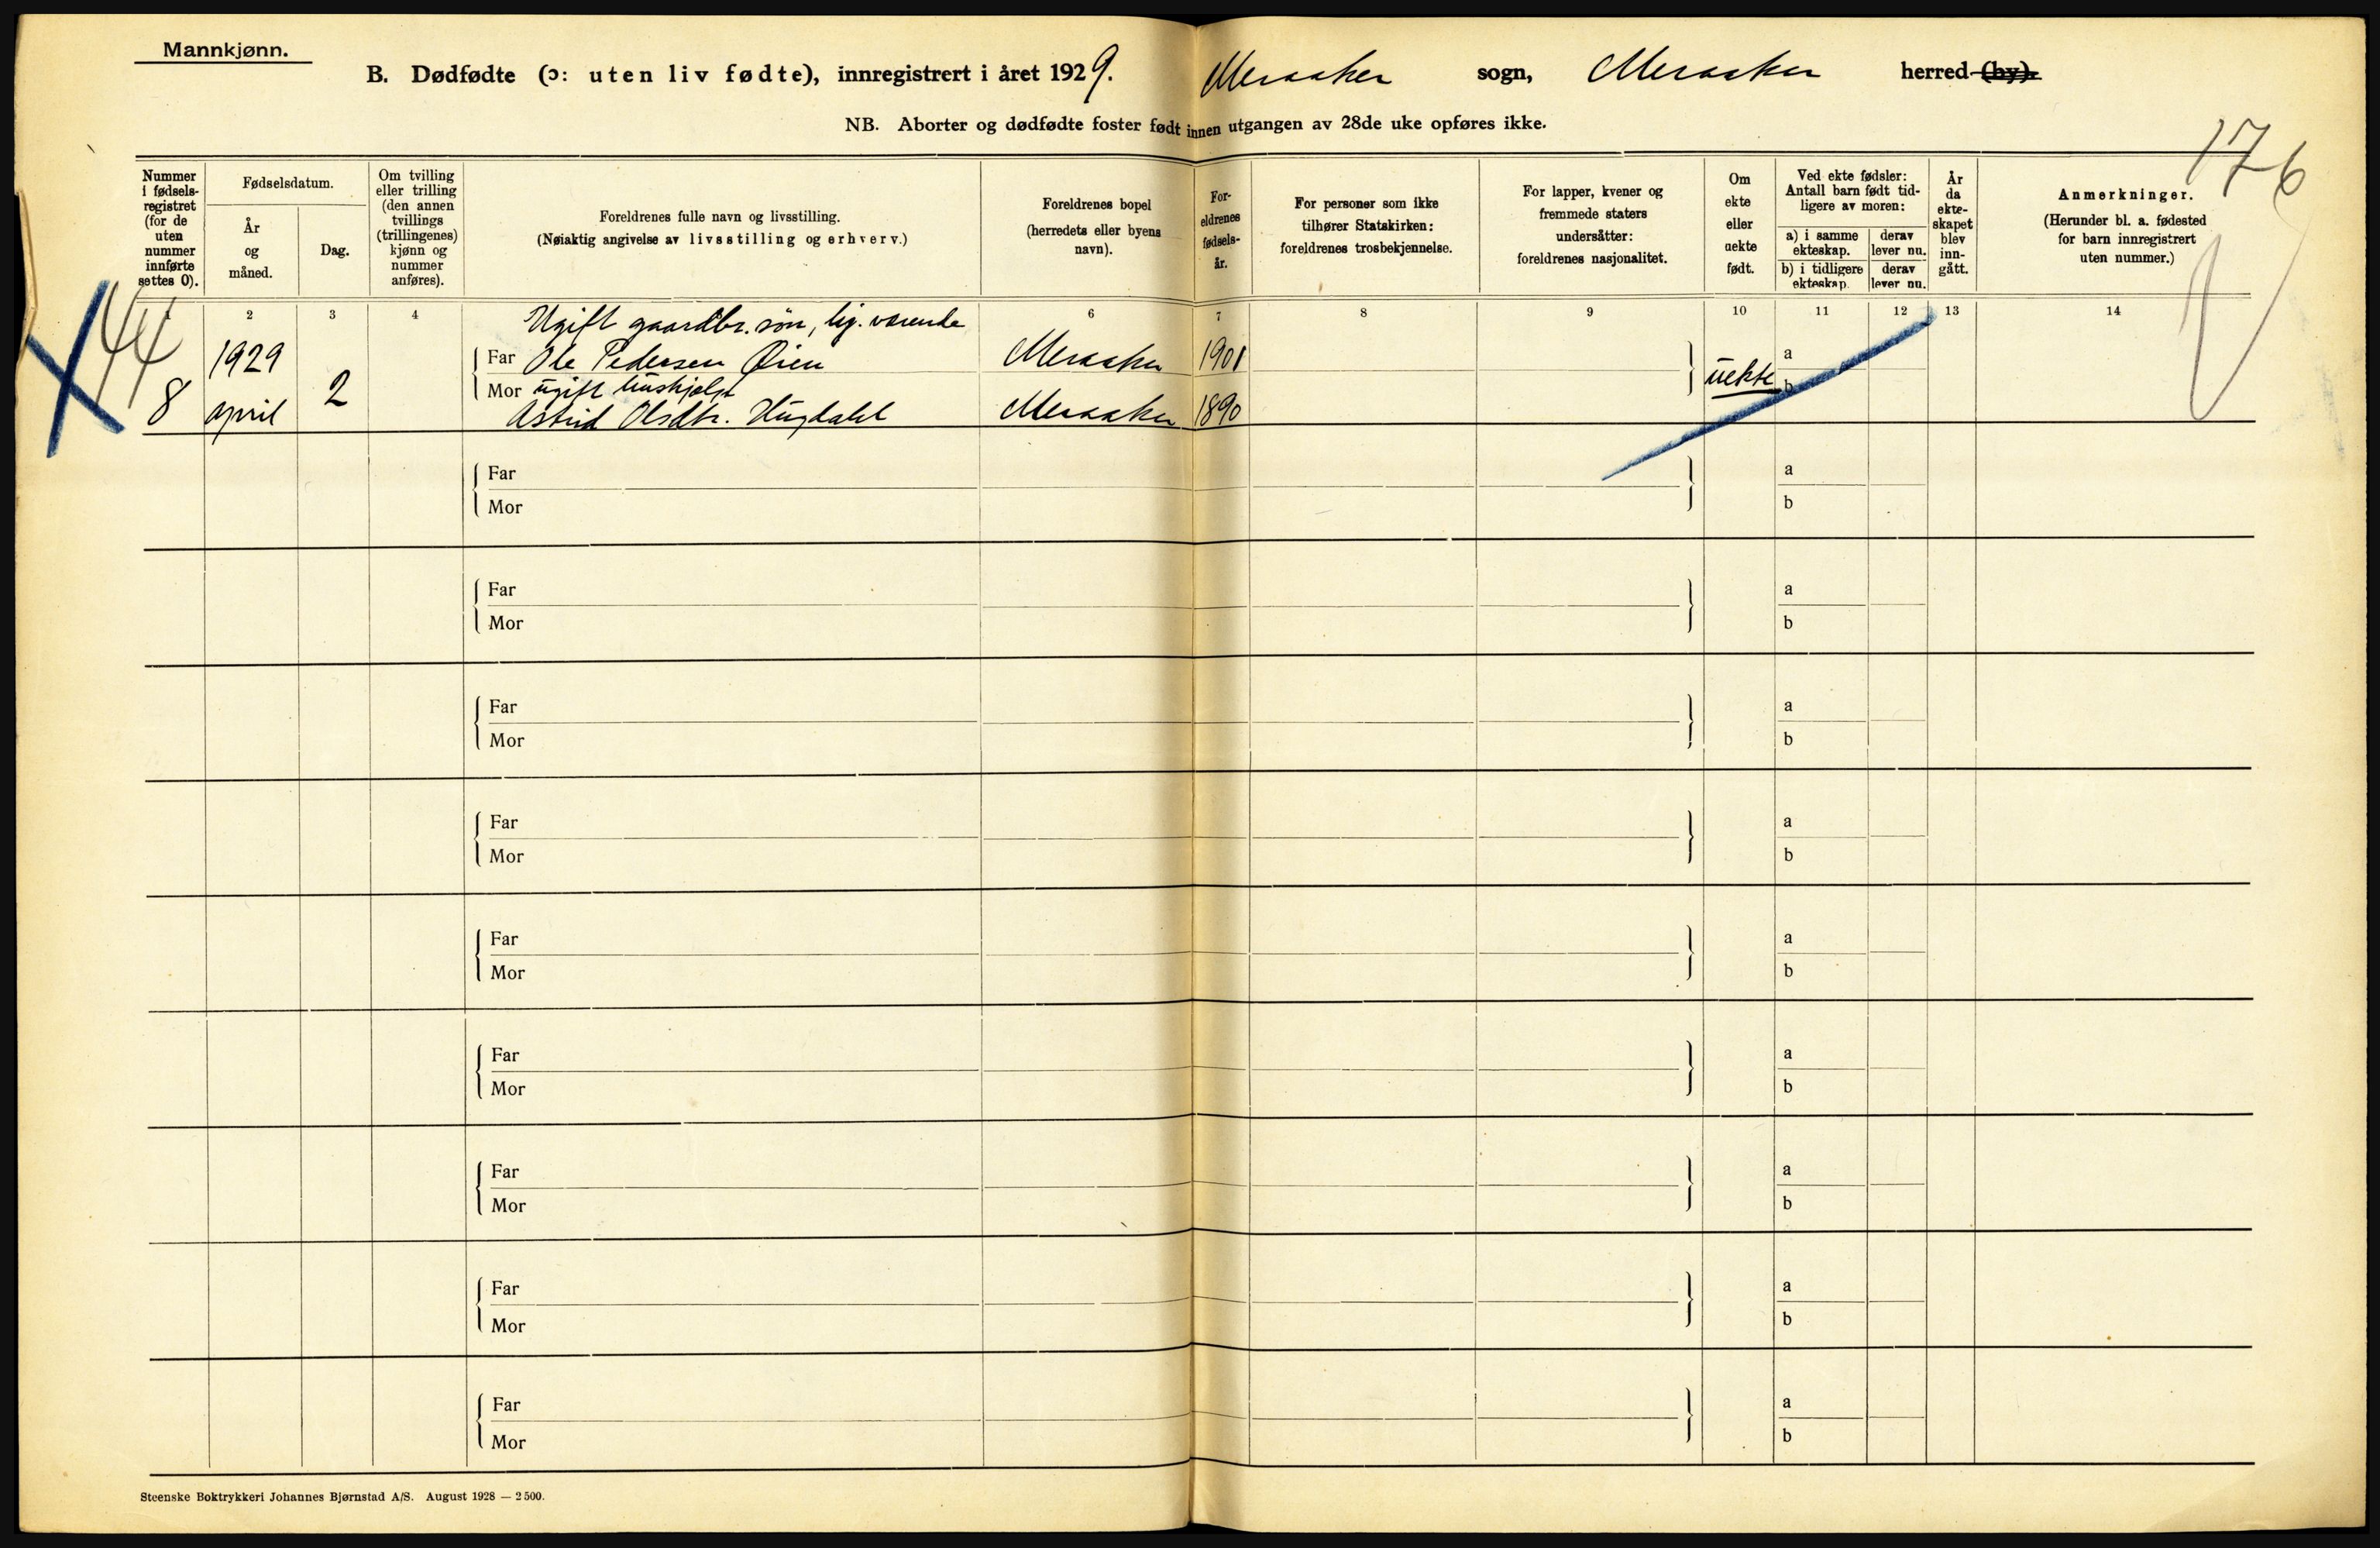 Mannkjønn.
B. Dødfødte (ɔ: uten liv fødte), innregistrert i året 1929. Meraaker sogn, Meraaker herred (by).
NB. Aborter og dødfødte foster født innen utgangen av 28de uke opføres ikke.
176
Nummer
i fødsels-
registret
(for de
uten
nummer
innførte
settes 0).
Fødselsdatum.
År
og
måned.
Dag.
Om tvilling
eller trilling
(den annen
tvillings
(trillingenes)
kjønn og
nummer
anføres).
Foreldrenes fulle navn og livsstilling.
(Nøiaktig angivelse av livsstilling og erhverv.)
Foreldrenes bopel
(herredets eller byens
navn).
For-
eldrenes
fødsels-
år.
For personer som ikke
tilhører Statskirken:
foreldrenes trosbekjennelse.
For lapper, kvener og
fremmede staters
undersåtter:
foreldrenes nasjonalitet.
Om
ekte
eller
uekte
født.
Ved ekte fødsler:
Antall barn født tid-
ligere av moren:
a) i samme
ekteskap.
derav
lever nu.
b) i tidligere
ekteskap.
derav
lever nu.
År
da
ekte-
skapet
blev
inn-
gått.
Anmerkninger.
(Herunder bl. a. fødested
for barn innregistrert
uten nummer.)
1 2 3 4 6 7 8 9 10 11 12 13 14
44
Ugift gaardbr. søn, hj. værende
1929 Far Ole Pedersen Øien Meraaker 1901 a
8 april 2 Mor ugift hushjelp uekte b
Astrid Olsdtr. Hugdahl Meraaker 1890
Far a
Mor b
Far a
Mor b
Far a
Mor b
Far a
Mor b
Far a
Mor b
Far a
Mor b
Far a
Mor b
Far a
Mor b
Far a
Mor b
Steenske Boktrykkeri Johannes Bjørnstad A/S. August 1928 — 2 500.